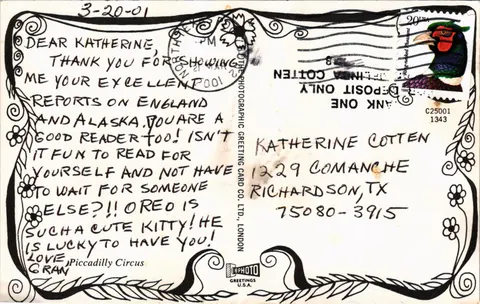 3-20-01
DEAR KATHERINE,
THANK YOU FOR SHOWING
ME YOUR EXCELLENT
REPORTS ON ENGLAND
AND ALASKA. YOU ARE A
GOOD READER TOO! ISN'T
IT FUN TO READ FOR
YOURSELF AND NOT HAVE
TO WAIT FOR SOMEONE
ELSE?!! OREO IS
SUCH A CUTE KITTY! HE
IS LUCKY TO HAVE YOU!
LOVE,
GRAN
Piccadilly Circus
PHOTOGRAPHIC GREETING CARD CO. LTD., LONDON
NORTH
PM
2001
20
ANK ONE
DEPOSIT ONLY
LINDA COTTEN
8
C25001
1343
KATHERINE COTTEN
1229 COMANCHE
RICHARDSON, TX
75080-3915
PHOTO
GREETINGS
U.S.A.